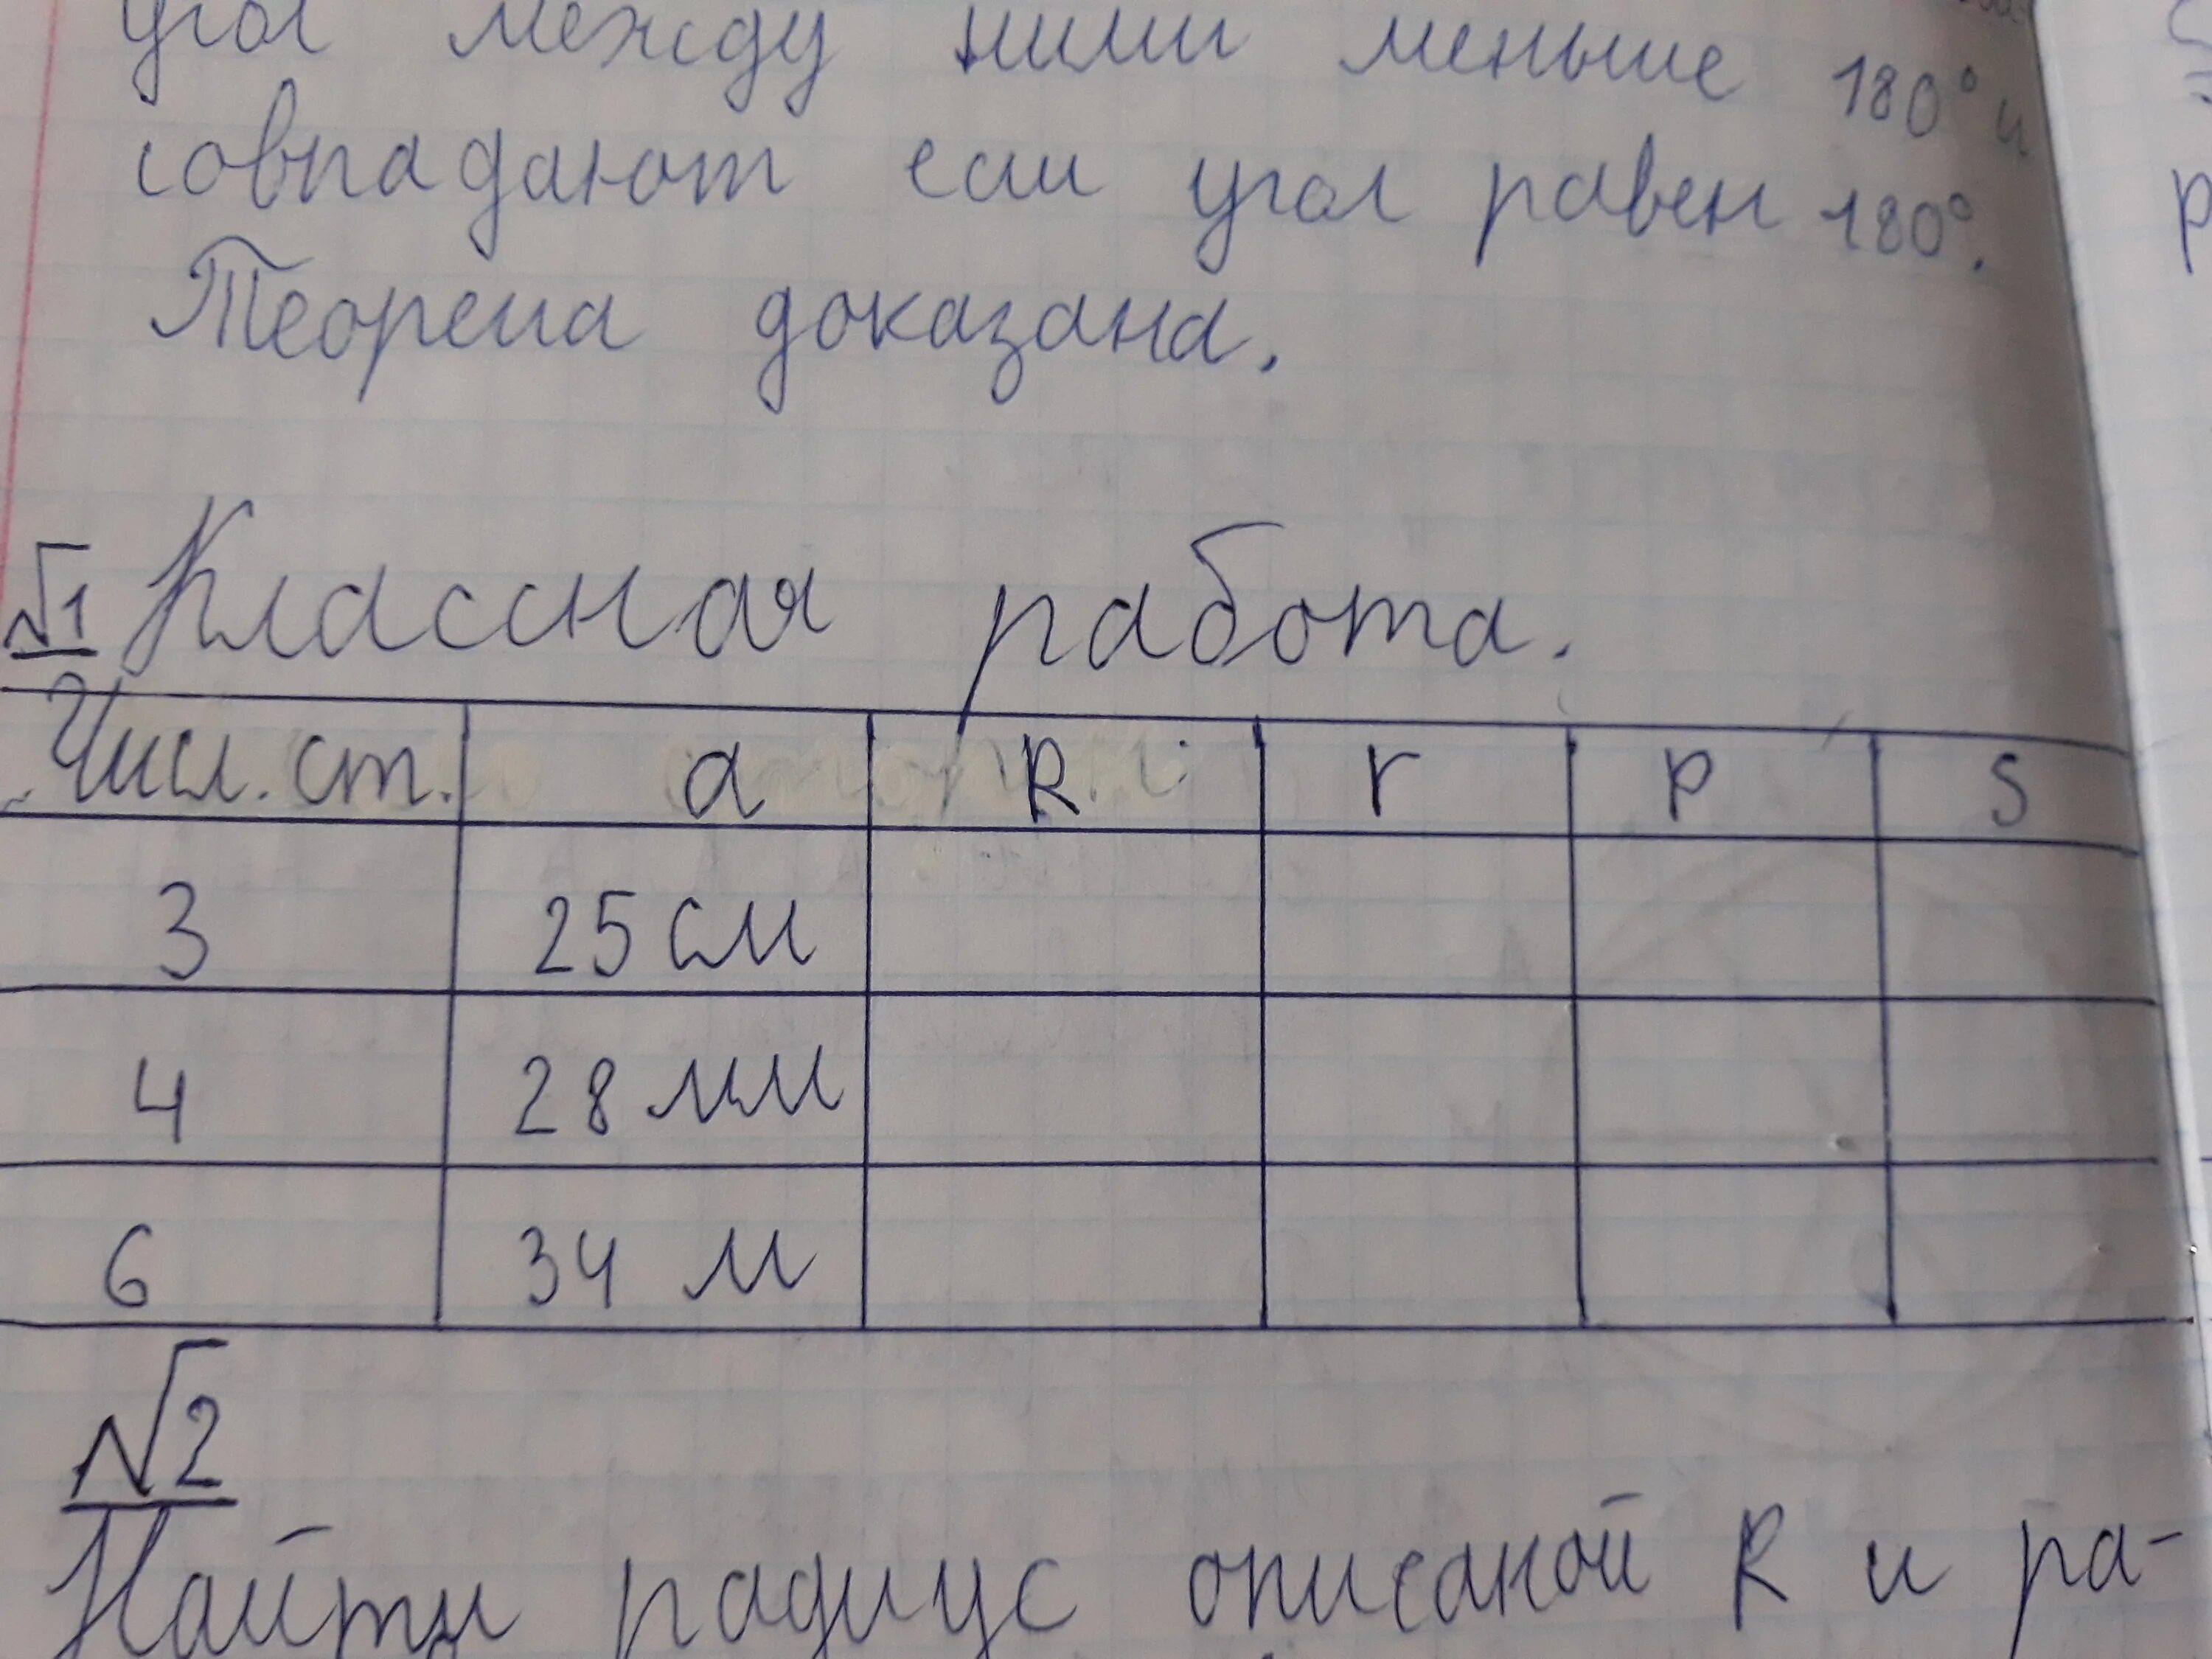 угол между ними меньше 180° и
совпадают если угол равен 180°.
Теорема доказана.
№1 Классная работа.
Числ. ст. a R r P S
3 25 см
4 28 мм
6 34 м
№2
Найти радиус описаной R и ра-